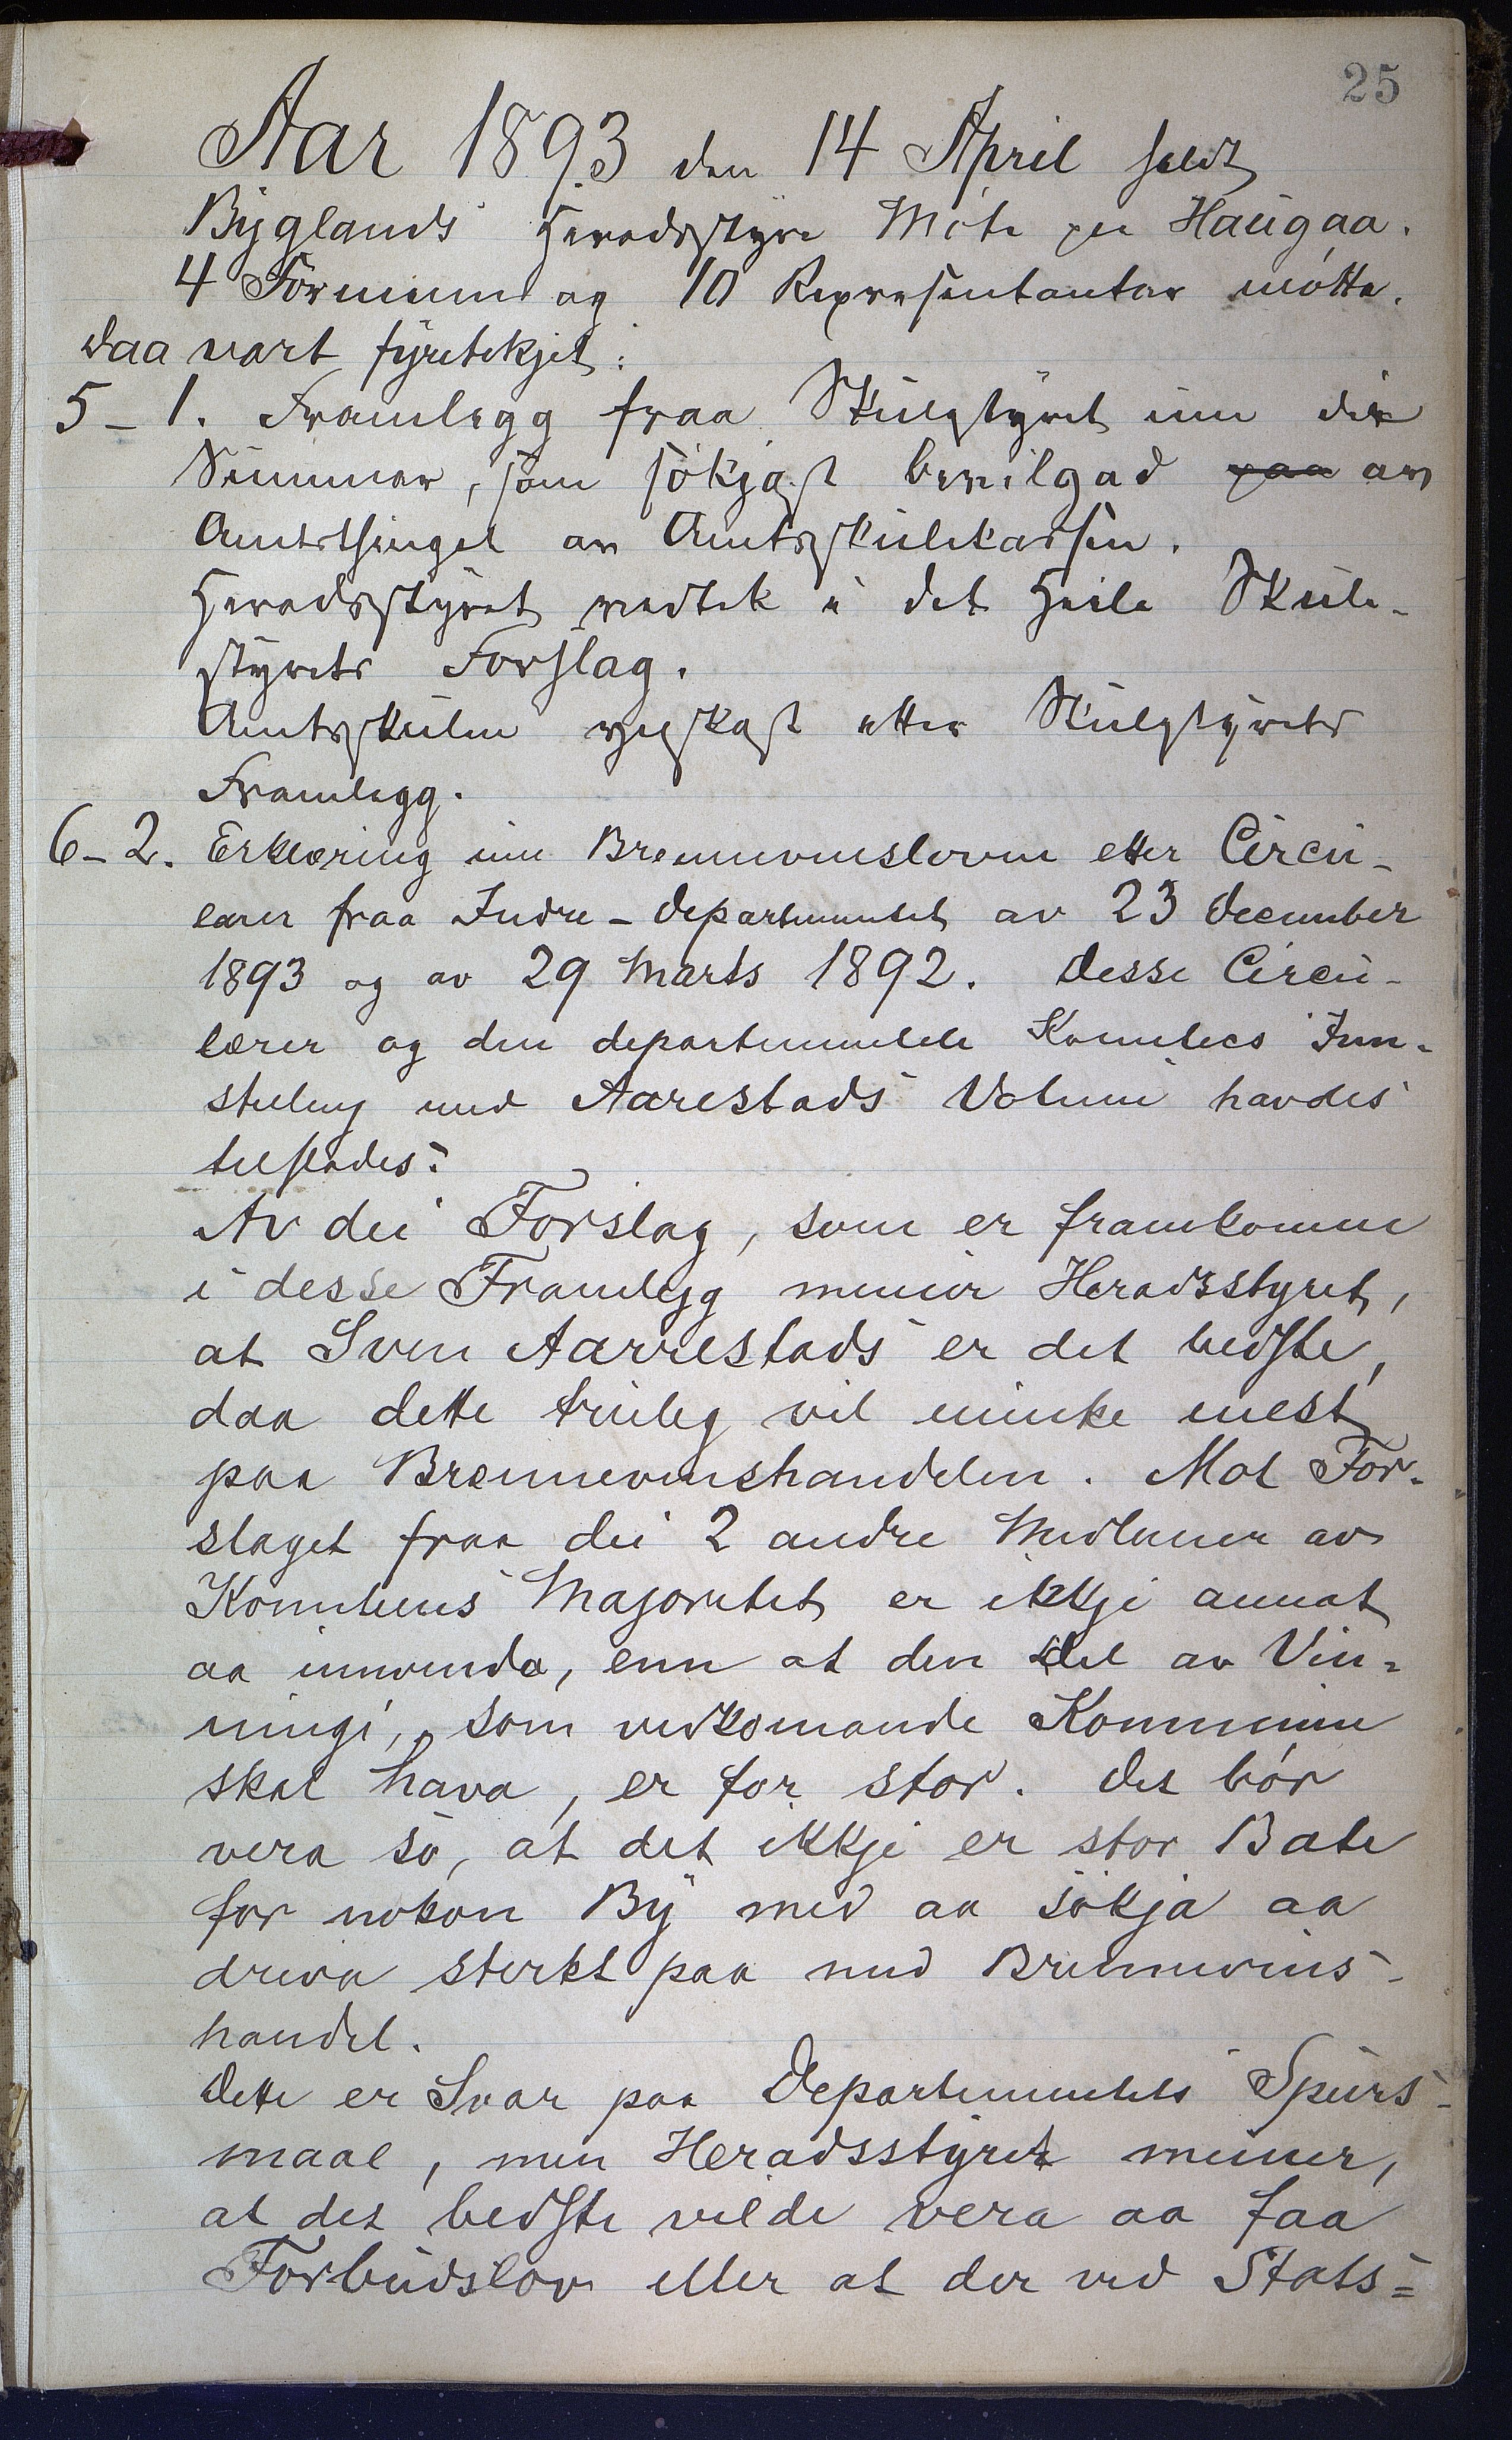 25
Aar 1893 den 14 April heldt
Byglands Heradsstyre Möte paa Haugaa.
4 Formenn og 10 Representantar mötte.
Daa vart fyretekjet:
5-1. Framlegg fraa Skulestyret um dei
Summar, som sökjast bevilgad paa av
Amtsthinget av Amtsskulekassen.
Heradsstyret vedtek i det Heile Skule-
styrets Forslag.
Amtsskulen ynskast etter Skulestyrets
Framlegg.
6-2. Erklæring um Brennevinsloven etter Circu-
lærer fraa Indre-Departementet av 23 December
1893 og av 29 Marts 1892. Desse Circu-
lærer og den departementale Komitees Inn-
stelling med Aarestads Votum havdes
tilstades:
Av dei Forslag, som er framkomne
i desse Framlegg meiner Heradsstyret,
at Sven Aarrestads er det bedste,
daa dette truleg vil minke mest
paa Brennevinshandelen. Mot For-
slaget fraa dei 2 andre Medlemer av
Komiteens Majoritet er ikkje annat
aa innvenda, enn at den Del av Vin-
ningi, som vedkomande Kommune
skal hava, er for stor. Det bör
vera so, at det ikkje er stor Bate
for nokon By med aa sökja aa
driva sterkt paa med Brennevins-
handel.
Dette er Svar paa Departementets Spurs-
maal, men Heradsstyret meiner,
at det bedste vilde vera aa faa
Forbudslov eller at der ved Stats-